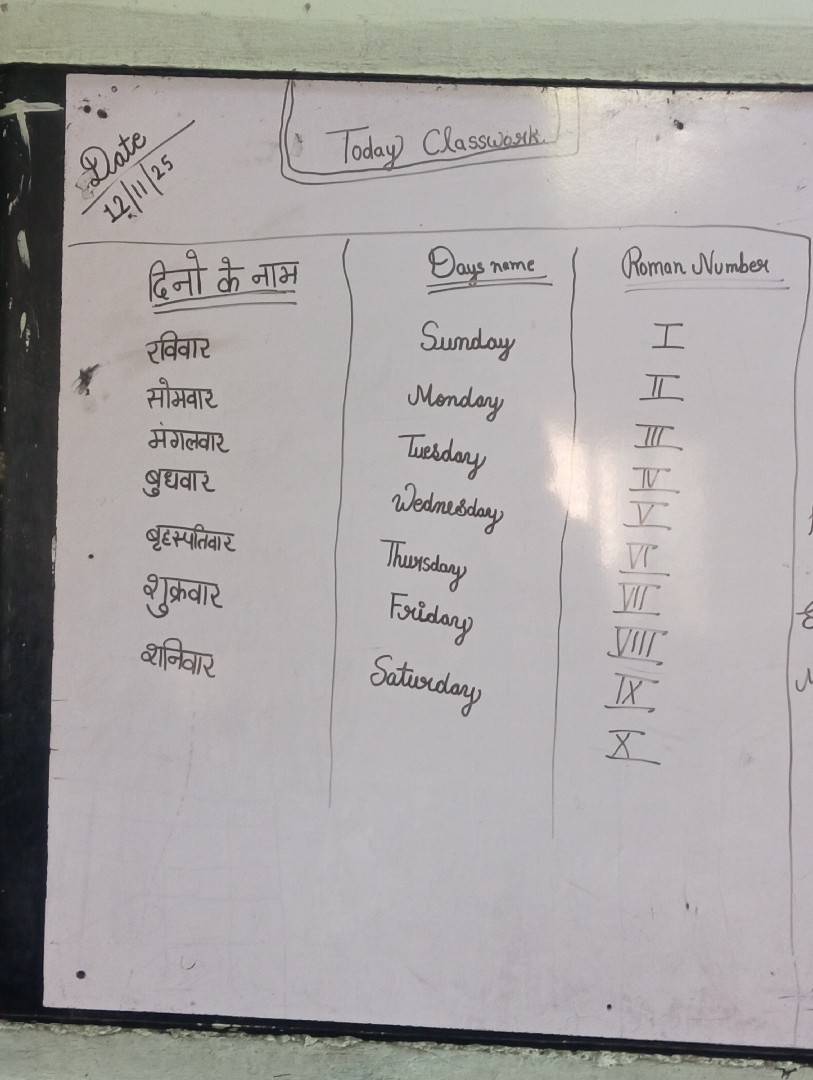 Date
12/11/25
Today Classwork.
दिनो के नाम
रविवार
सोमवार
मंगलवार
बुधवार
बृहस्पतिवार
शुक्रवार
शनिवार
Days name
Sunday
Monday
Tuesday
Wednesday
Thursday
Friday
Saturday
Roman Number
I
II
III
IV
V
VI
VII
VIII
IX
X